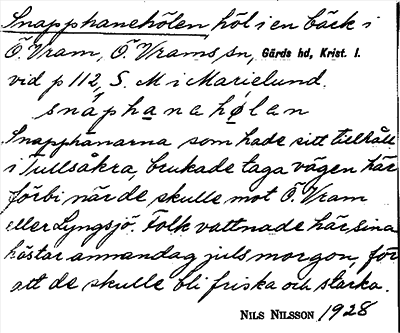 Snapphanehölen höl i en bäck i
Ö. Vram, Ö. Vrams sn, Gärds hd, Krist. l.
vid p 112, S. M i Marielund.
snáphanahølan
Snapphanarna som hade sitt tillhåll
i Tullsåkra, brukade taga vägen här
förbi när de skulle mot Ö. Vram
eller Lyngsjö. Folk vattnade här sina
hästar annandag juls morgon, för
att de skulle bli friska och starka.
NILS NILSSON 1928